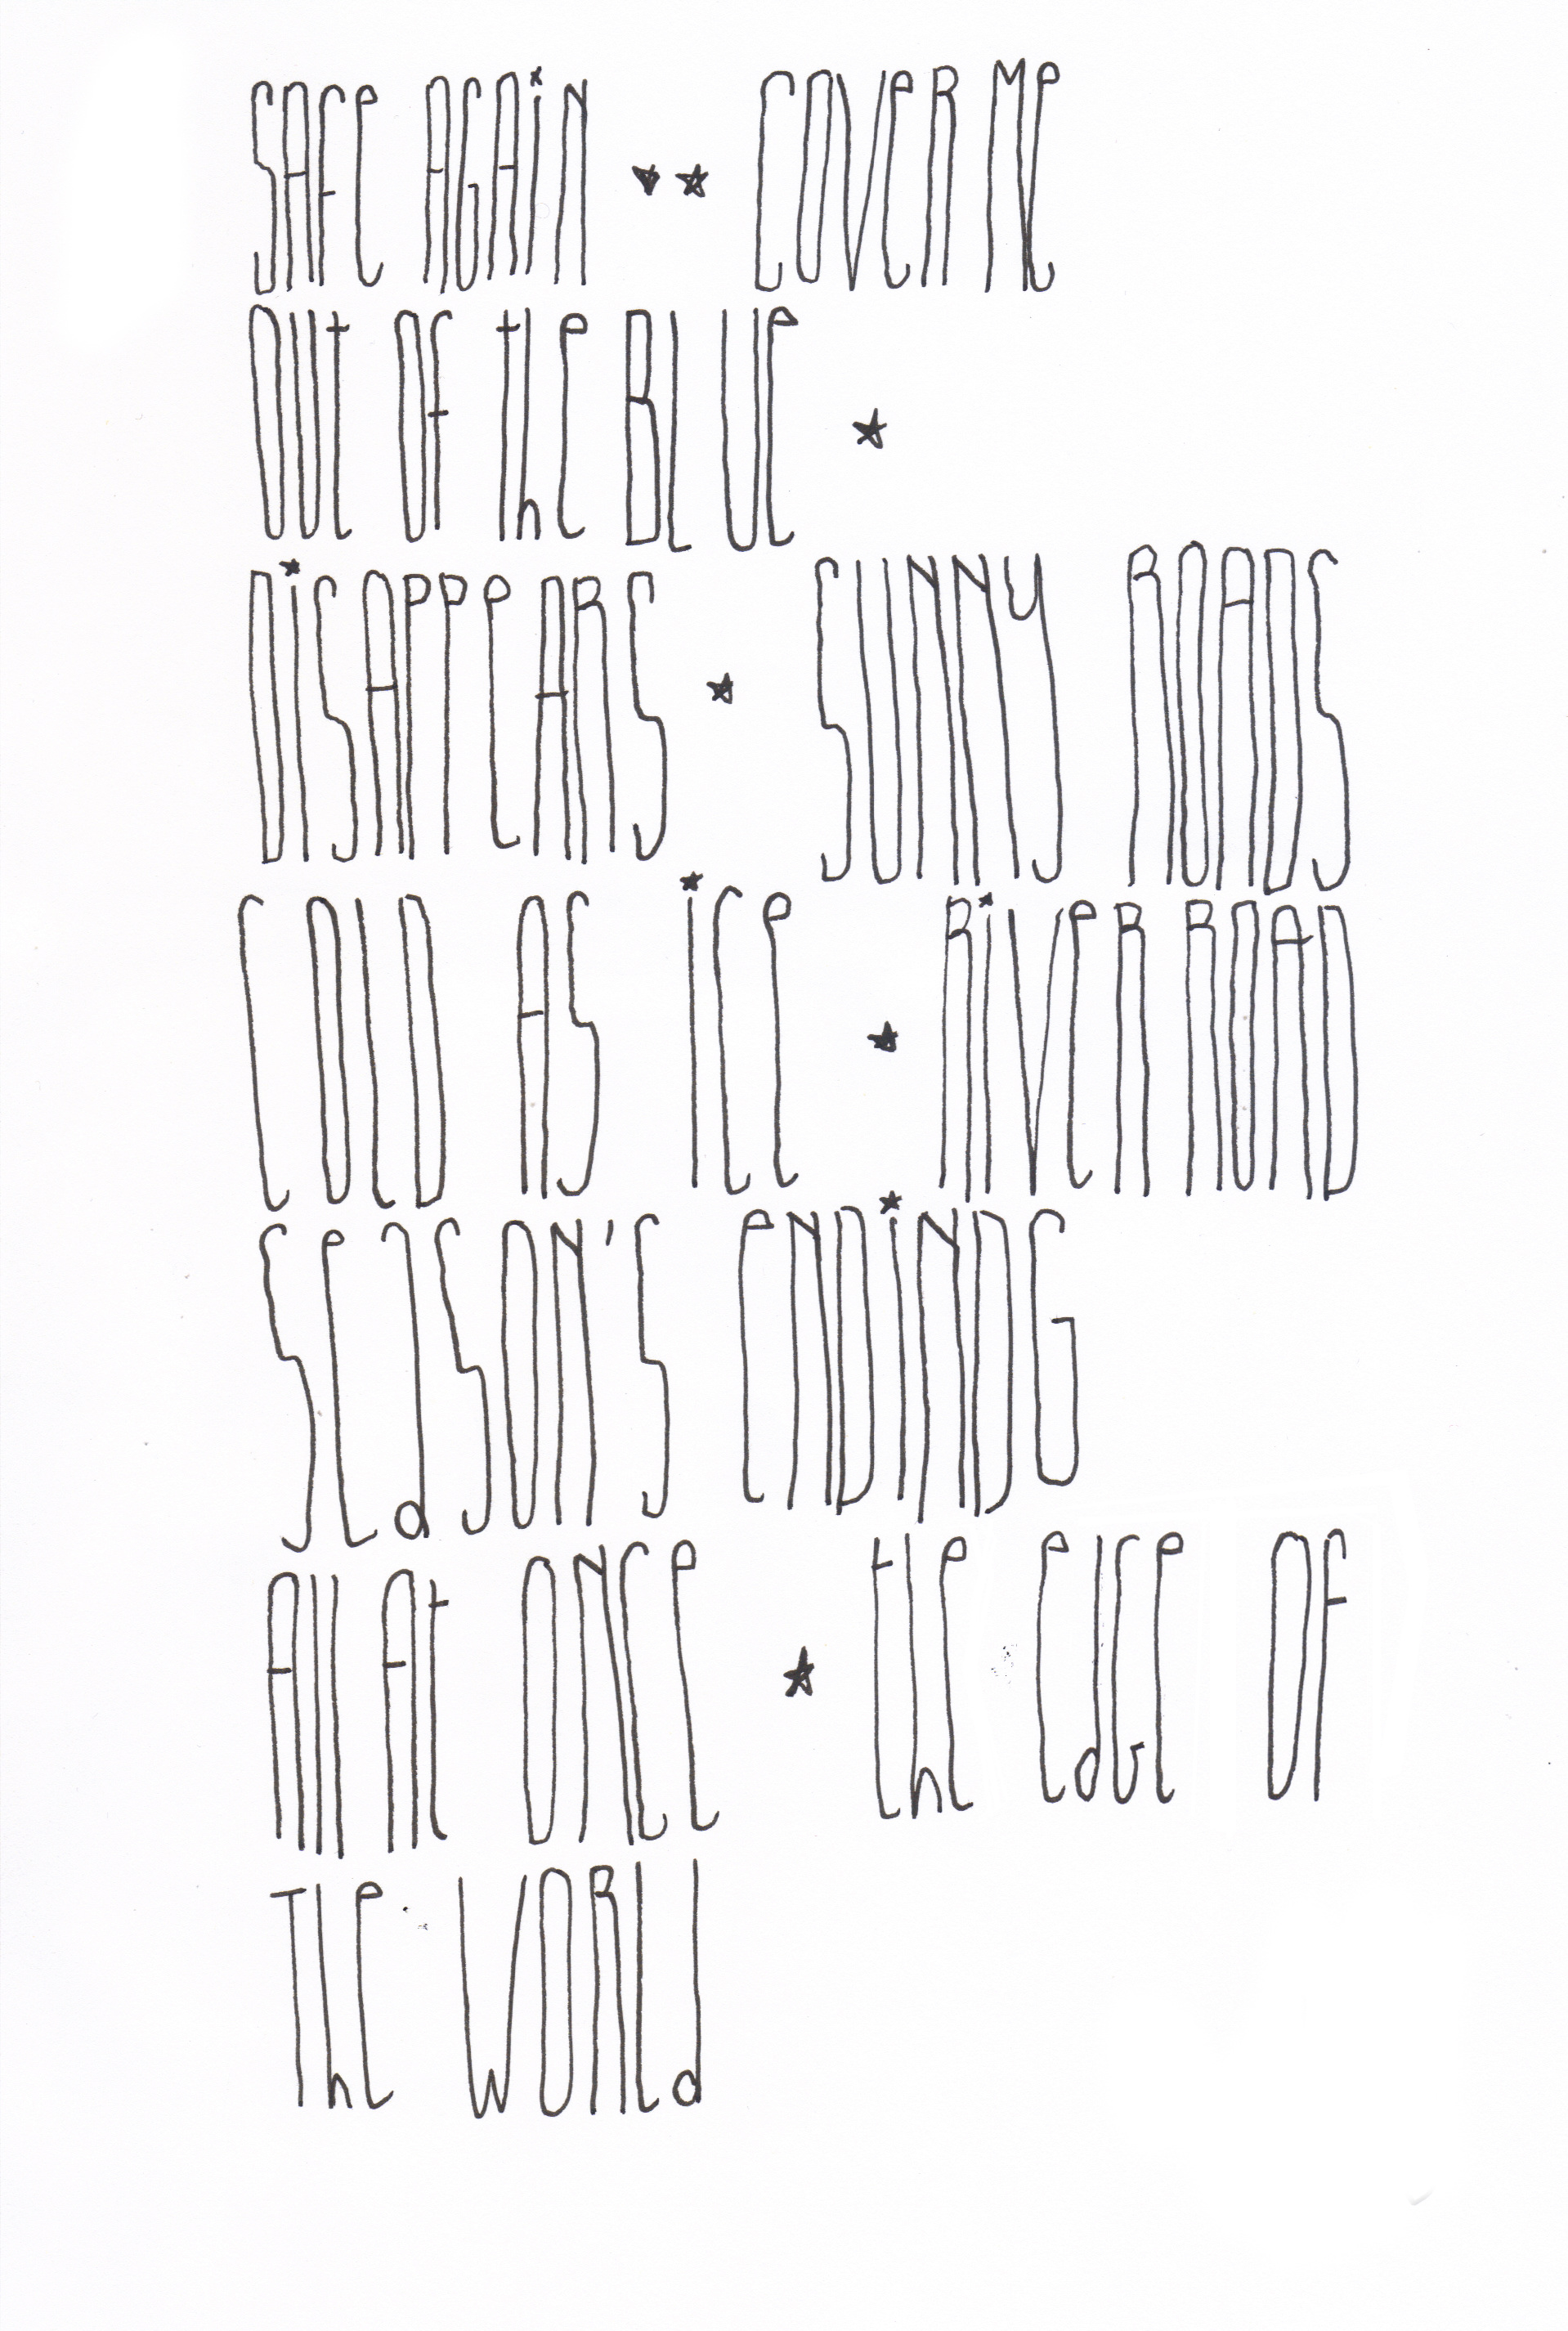 SAFE AGAiN ♥★ COVER ME
OUt OF thE BLUE ★
DiSAPPEARS ★ SUNNY ROADS
COLD AS iCE ★ RiVER ROAD
SEaSON'S ENDiNDG
All At ONCE ★ thE EdGE OF
ThE WORLd